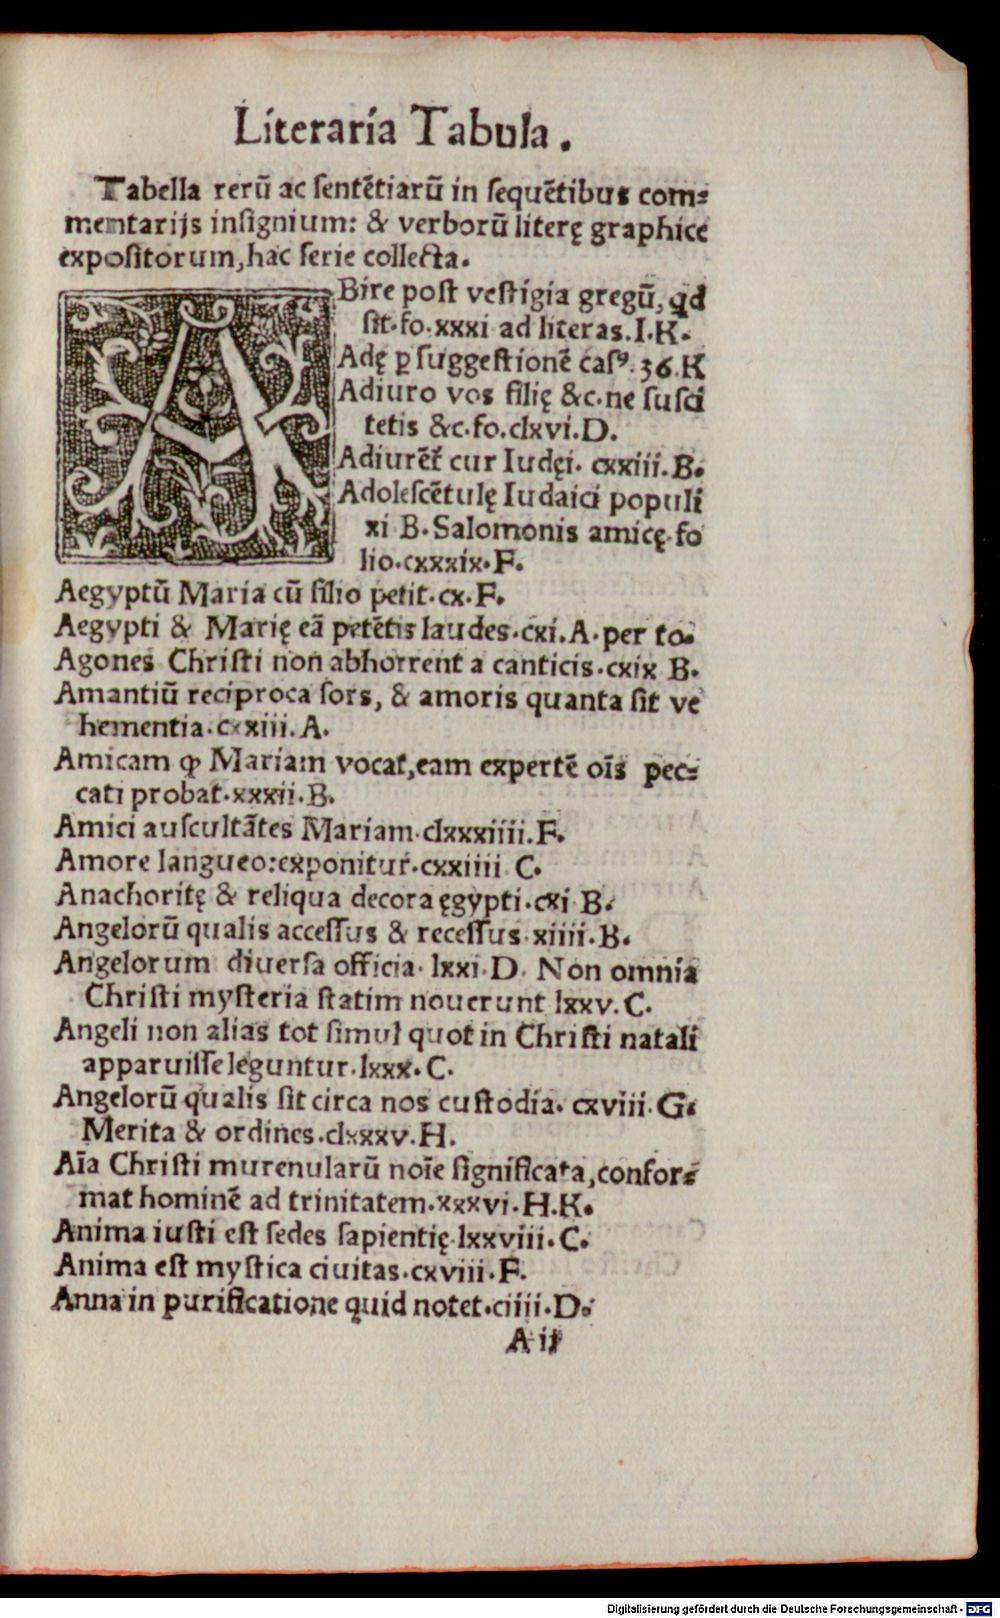 Literaria Tabula.
Tabella rerū ac ſentētiarū in ſequētibus com⸗
mentarijs inſignium: & verborū literę graphice
expoſitorum, hac ſerie collecta.
ABire poſt veſtigia gregū, qd
ſit. fo. xxxi ad literas. I. K.
Adę ꝑ ſuggeſtionē caſꝰ. 36. K
Adiuro vos filię &c. ne ſuſci
tetis &c. fo. clxvi. D.
Adiurēt᷑ cur Iudęi. cxxiii. B.
Adoleſcētulę Iudaici populi
xi B. Salomonis amicę. fo
lio. cxxxix. F.
Aegyptū Maria cū filio petit. cx. F.
Aegypti & Marię eā petētis laudes. cxi. A. per to.
Agones Chriſti non abhorrent a canticis. cxix B.
Amantiū reciproca ſors, & amoris quanta ſit ve
hementia. cxxiii. A.
Amicam ꝙ Mariam vocat, eam expertē oīs pec⸗
cati probat. xxxii. B.
Amici auſcultātes Mariam. clxxxiiii. F.
Amore langueo: exponitur. cxxiiii C.
Anachoritę & reliqua decora ęgypti. cxi B.
Angelorū qualis acceſſus & receſſus. xiiii. B.
Angelorum diuerſa officia. lxxi. D. Non omnia
Chriſti myſteria ſtatim nouerunt lxxv. C.
Angeli non alias tot ſimul quot in Chriſti natali
apparuiſſe leguntur. lxxx. C.
Angelorū qualis ſit circa nos cuſtodia. cxviii. G.
Merita & ordines. clxxxv. H.
Aīa Chriſti murenularū noīe ſignificata, confor⸗
mat hominē ad trinitatem. xxxvi. H. K.
Anima iuſti eſt ſedes ſapientię. lxxviii. C.
Anima eſt myſtica ciuitas. cxviii. F.
Anna in purificatione quid notet. ciiii. D.
A ii
Digitalisierung gefördert durch die Deutsche Forschungsgemeinschaft - DFG